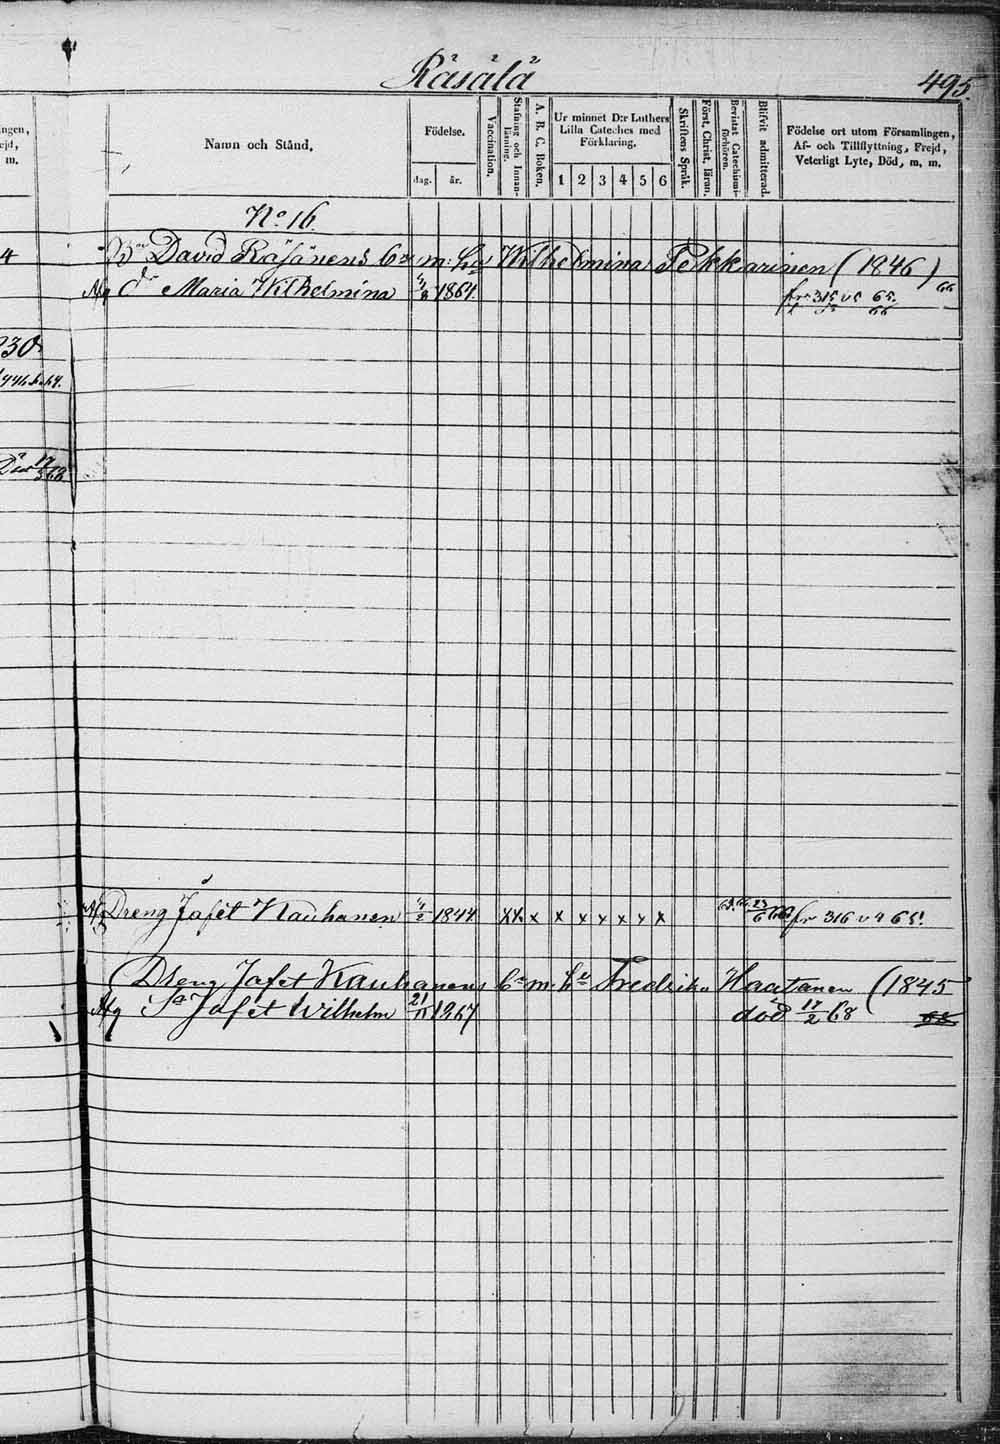 Räsälä
495.
ngen,
ejd,
m.
Namn och Stånd.
Födelse.
dag.
år.
Vaccination.
Stafning och Innanläsning.
A. B. C. Boken.
Ur minnet D:r Luthers
Lilla Cateches med
Förklaring.
1 2 3 4 5 6
Skriftens Språk.
Först. Christ. läran.
Bevistat Catechismiförhören.
Blifvit admitterad.
Födelse ort utom Församlingen,
Af- och Tillflyttning, Frejd,
Veterligt Lyte, Död, m, m.
No 16.
4
David Räsänens m. Wilhelmina Pekkarinen (1846)
66
Maria Wilhelmina 1864.
fr 315 v s 65.
66
230
Dreng Jafet Kauhanen 4/2 1844. x x x x x x x x x
23/6
fr 316 v s 65.
Dreng Jafet Kauhanens m. Fredrika Haatanen (1845
Jafet Wilhelm 21/11 1867
död 18/2 68